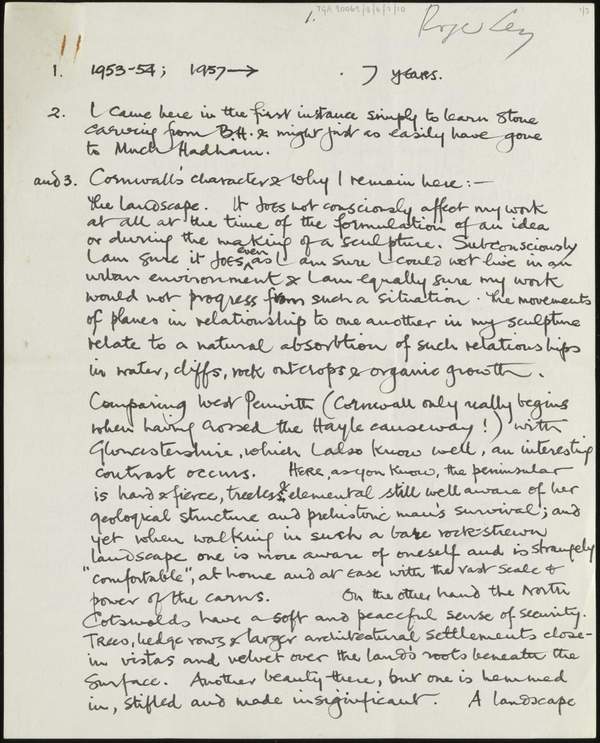 1. TGA 20062/3/6/7/10 1/3
Roger Ley
1. 1953-54; 1957→ . 7 years.
2. I came here in the first instance simply to learn stone
carving from B.H. & might just as easily have gone
to Much Hadham.
and 3. Cornwall's character & why I remain here:—
The landscape. It does not consciously affect my work
at all at the time of the formulation of an idea
or during the making of a sculpture. Subconsciously
I am sure it does, even as I am sure I could not live in an
urban environment & I am equally sure my work
would not progress from such a situation. The movements
of planes in relationship to one another in my sculpture
relate to a natural absorbtion of such relationships
in water, cliffs, rock outcrops & organic growth.
Comparing West Penwith (Cornwall only really begins
when having crossed the Hayle causeway!) with
Gloucestershire, which I also know well, an interesting
contrast occurs. Here, as you know, the peninsular
is hard & fierce, treeless & elemental still well aware of her
geological structure and prehistoric man's survival; and
yet when walking in such a bare rock-strewn
landscape one is more aware of oneself and is strangely
"comfortable", at home and at ease with the vast scale &
power of the carns. On the other hand the North
Cotswolds have a soft and peaceful sense of security.
Trees, hedge rows & larger architectural settlements close-
in vistas and velvet over the land's roots beneath the
surface. Another beauty there, but one is hemmed
in, stifled and made insignificant. A landscape